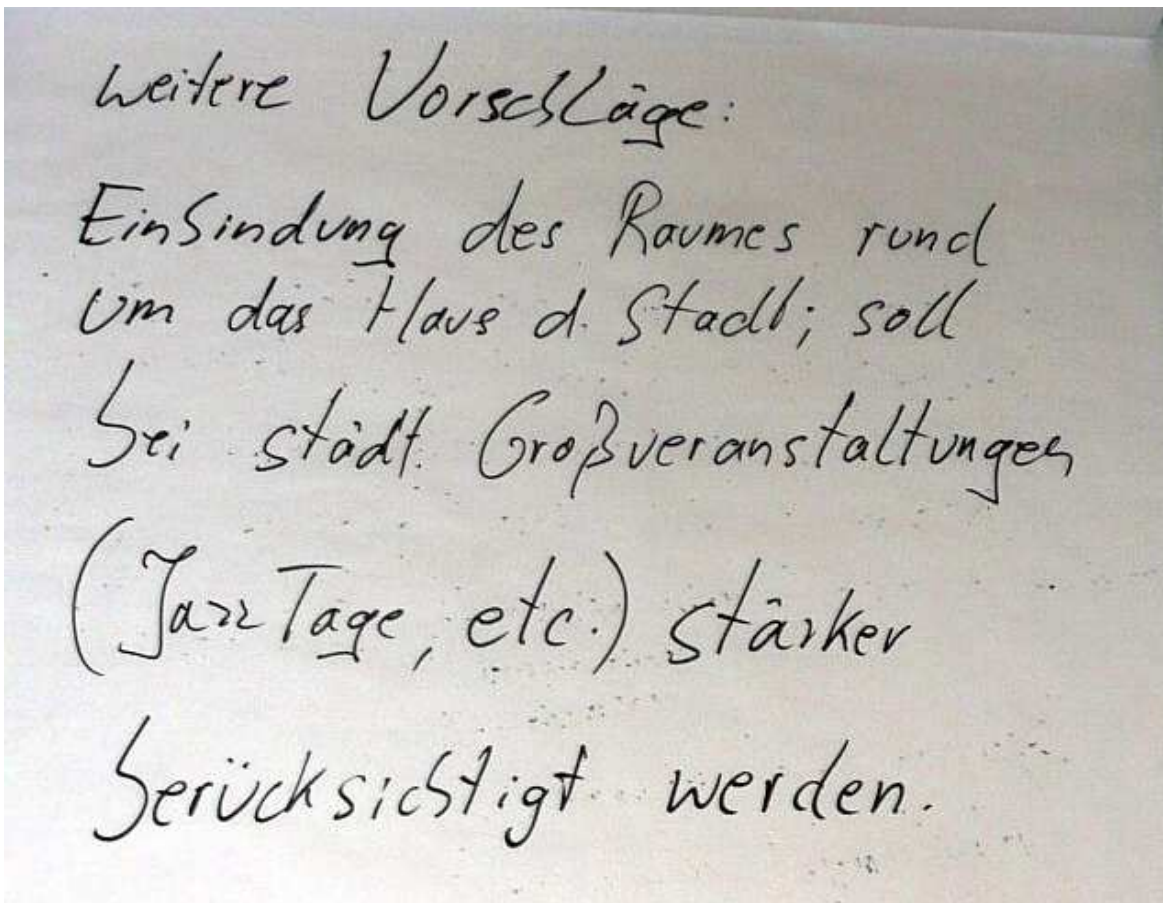 weitere Vorschläge:
Einbindung des Raumes rund
um das Haus d. Stadt; soll
bei städt. Großveranstaltungen
(Jazz Tage, etc.) stärker
berücksichtigt werden.